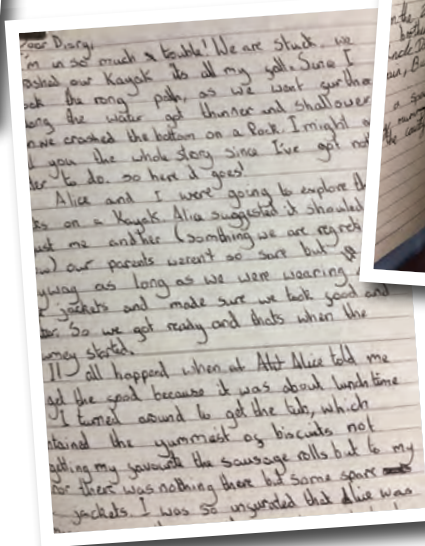 Dear Diary,
I'm in so much trouble! We are stuck. We
ashed our Kayak its all my falt. Sure I
ook the rong path, as we want gurther
ong the water got thinner and shallower
n we crashed the bottom on a Rock. I might
l you the whole story since I've got not
der to do. so here it goes!
Alice and I were going to explore th
ks on a Kayak. Alice suggested it should
ust me and her (somthing we are regrett
w) our parents weren't so sure but
yway as long as we were wearing
e jackets and made sure we took good and
ter. So we got ready and thats when the
urney started.
It all happend when at Alice told me
get the good because it was about lunchtime
I turned around to get the tub, which
ntained the yummest of biscuits not
getting my favourite the sausage rolls but to my
ror there was nothing there but some spare
jackets. I was so that Alice was
n the
broth
ncle D
een, B
a spa
mumm
the coul